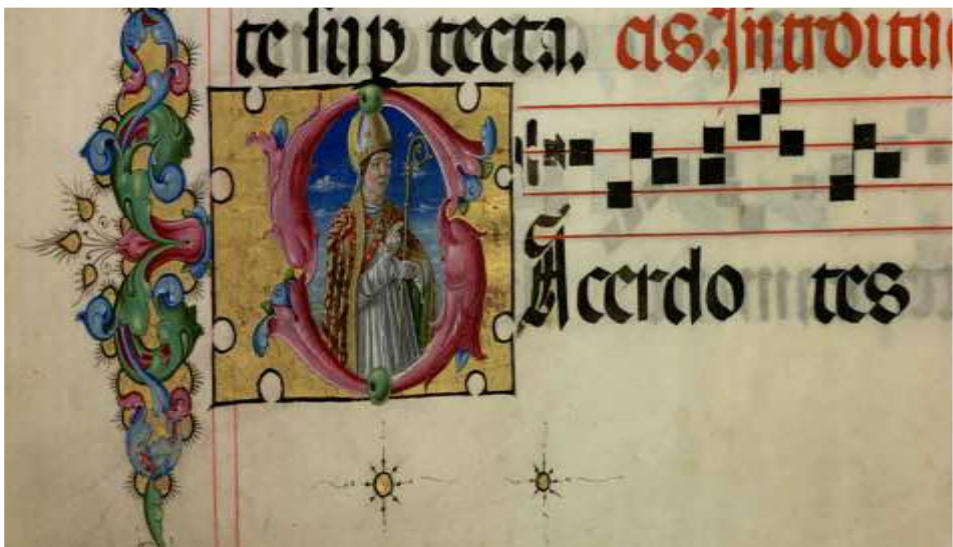 te sup tecta. cis. Introitu
SAcerdo tes